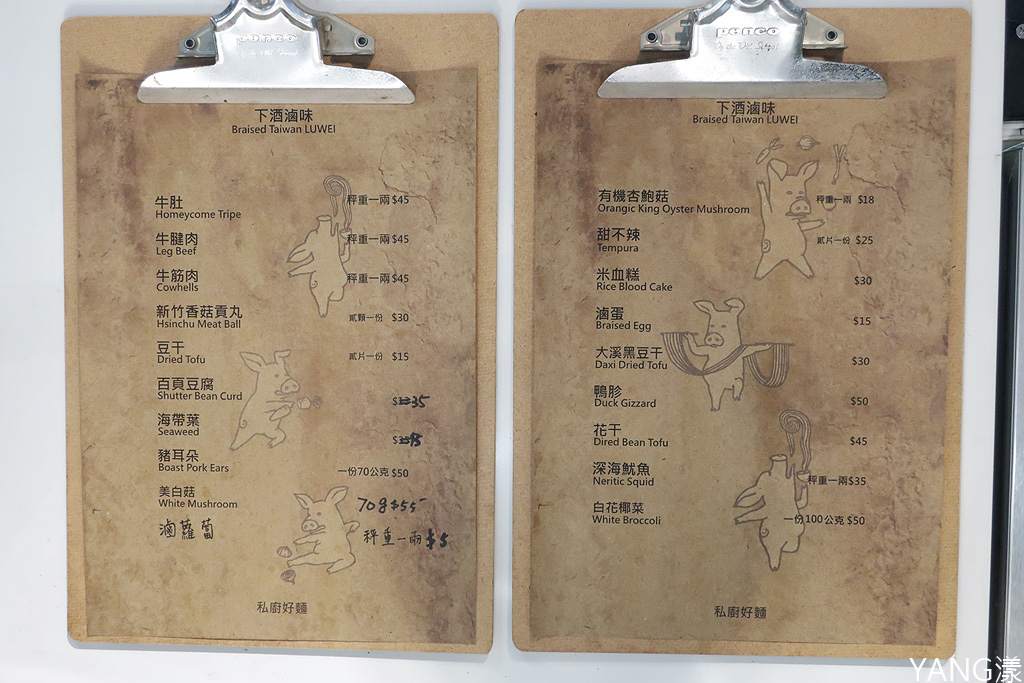 penco
下酒滷味
Braised Taiwan LUWEI
牛肚 秤重一兩 $45
Homeycome Tripe
牛腱肉 秤重一兩 $45
Leg Beef
牛筋肉 秤重一兩 $45
Cowhells
新竹香菇貢丸 貳顆一份 $30
Hsinchu Meat Ball
豆干 貳片一份 $15
Dried Tofu
百頁豆腐
Shutter Bean Curd $35
海帶葉
Seaweed $
豬耳朵
Boast Pork Ears 一份70公克 $50
美白菇
White Mushroom 70g $55
滷蘿蔔 秤重一兩 $5
私廚好麵
penco
下酒滷味
Braised Taiwan LUWEI
有機杏鮑菇 秤重一兩 $18
Orangic King Oyster Mushroom
甜不辣 貳片一份 $25
Tempura
米血糕 $30
Rice Blood Cake
滷蛋 $15
Braised Egg
大溪黑豆干 $30
Daxi Dried Tofu
鴨胗 $50
Duck Gizzard
花干 $45
Dired Bean Tofu
深海魷魚 秤重一兩$35
Neritic Squid
白花椰菜 一份100公克 $50
White Broccoli
私廚好麵
YANG漾